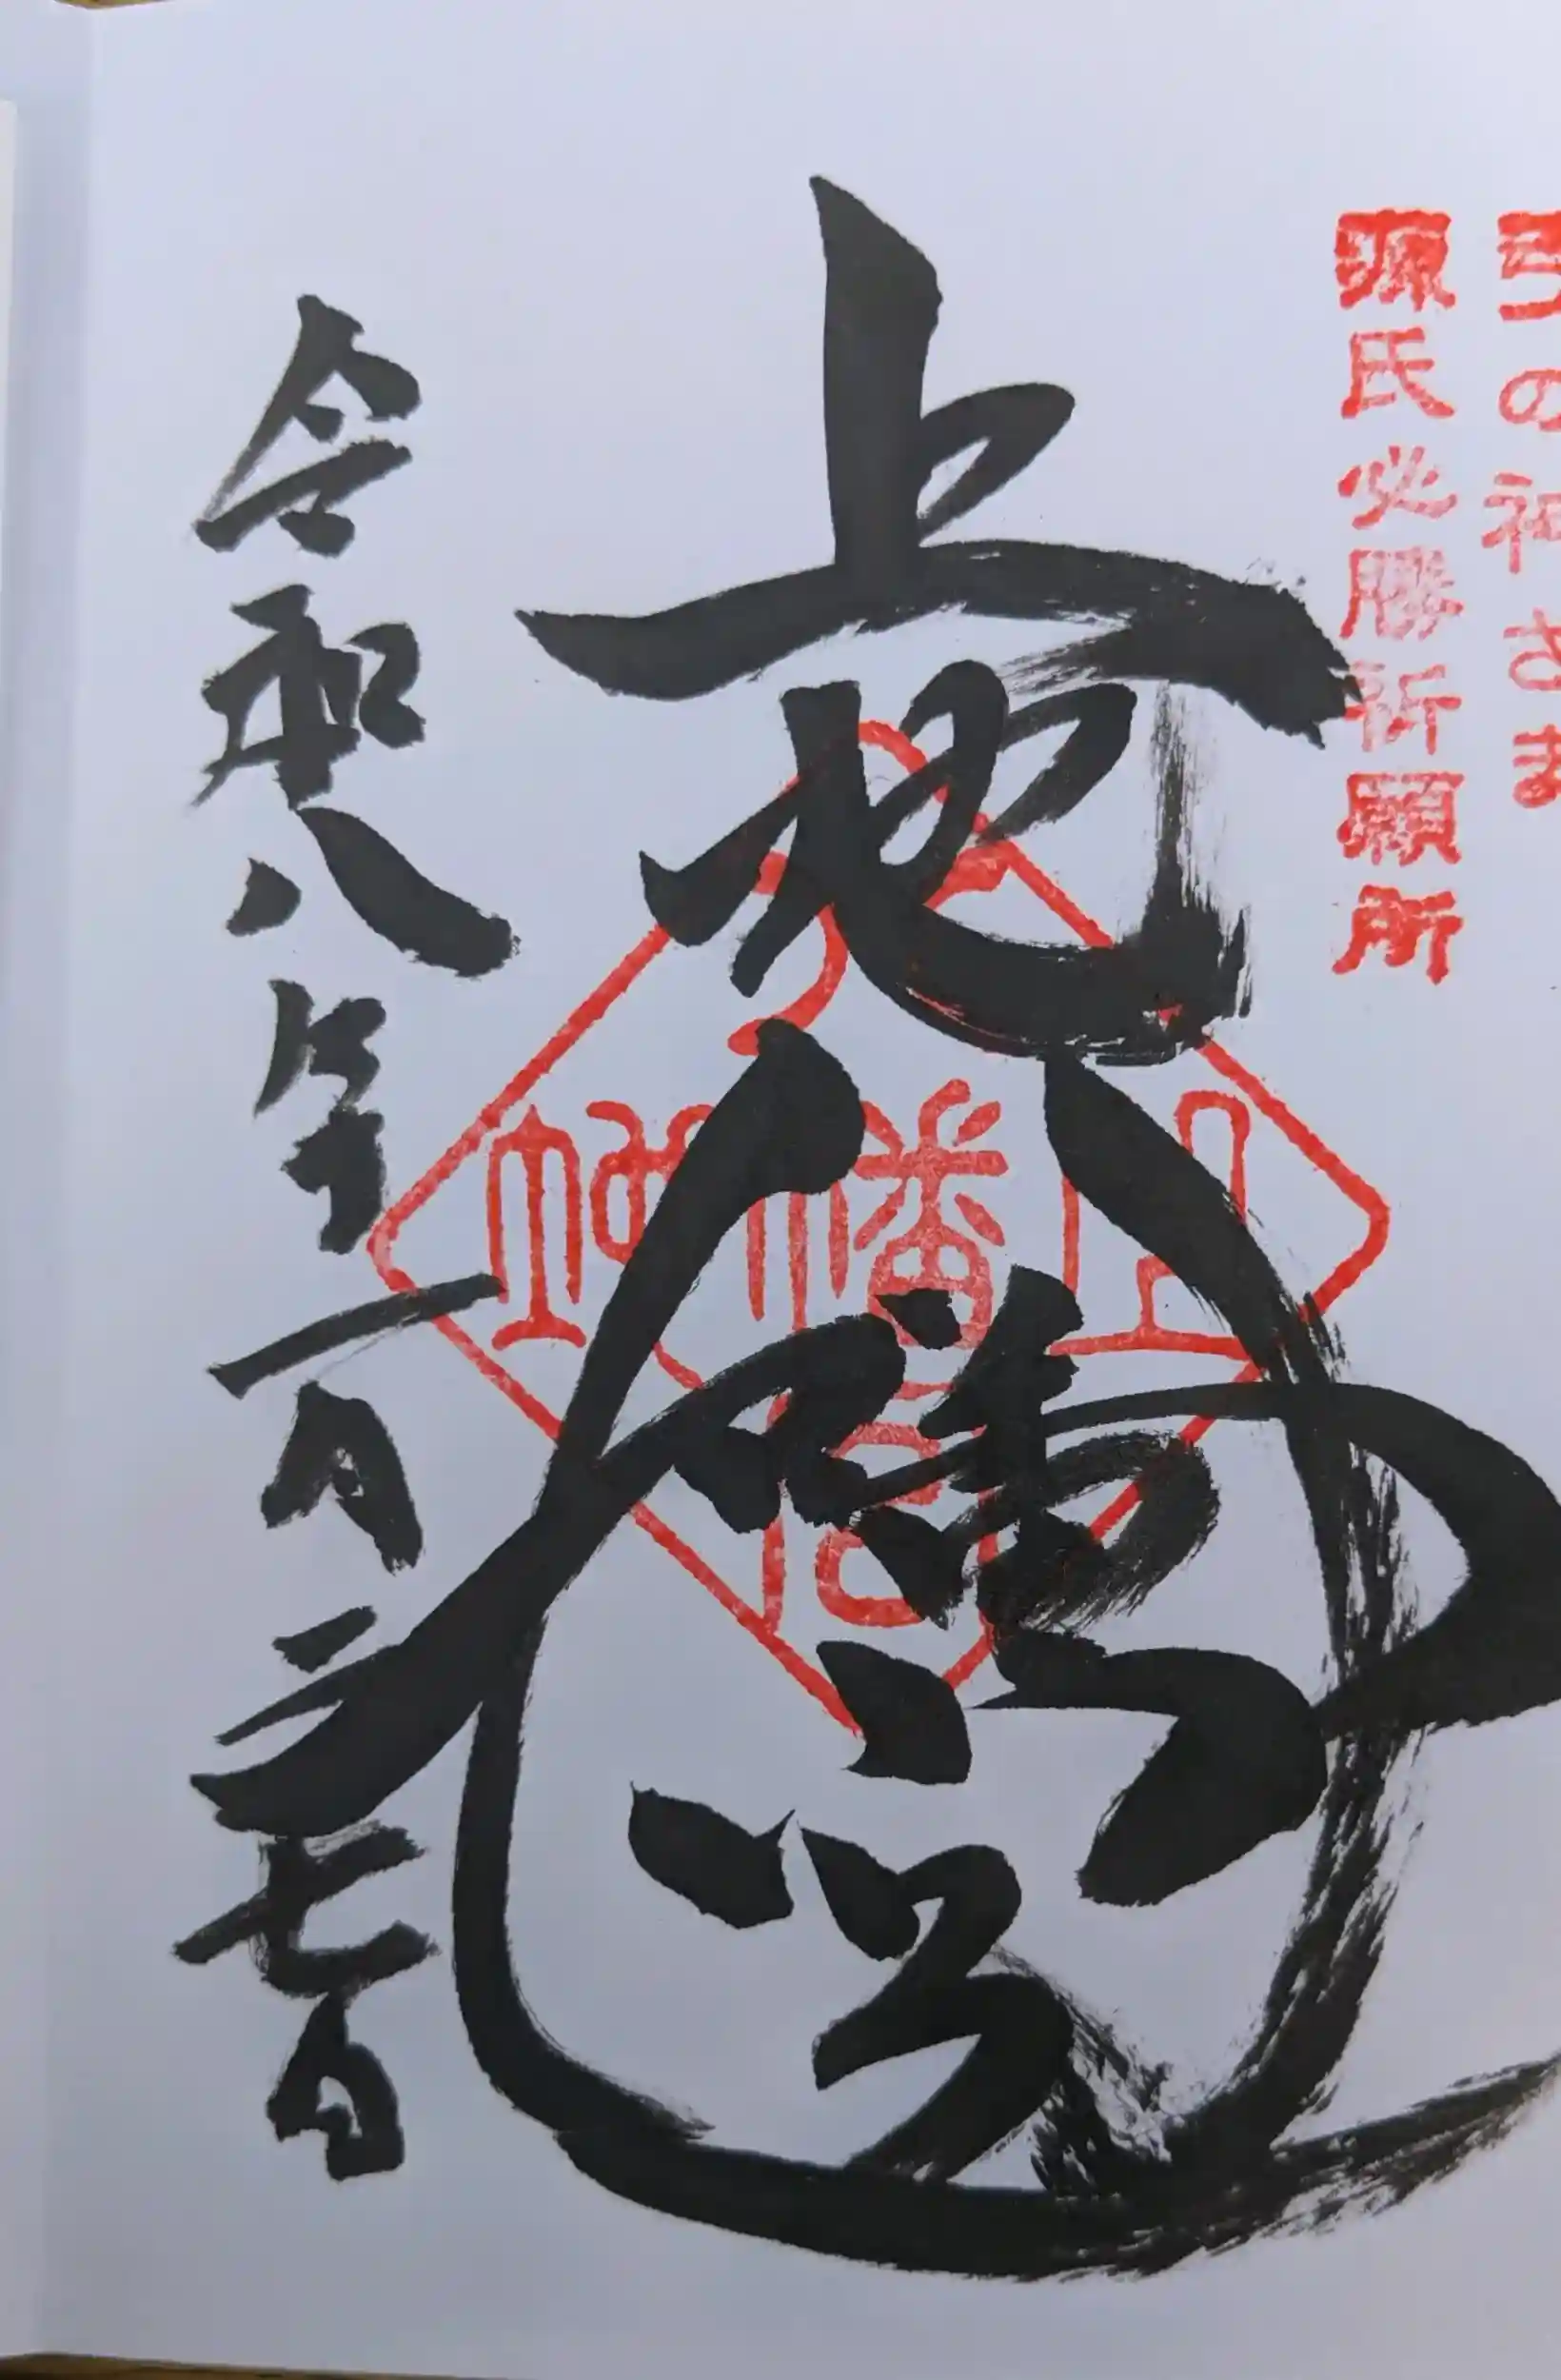 弓の神さま
源氏必勝祈願所
上地八幡宮
上地八幡宮
令和八年一月二七日